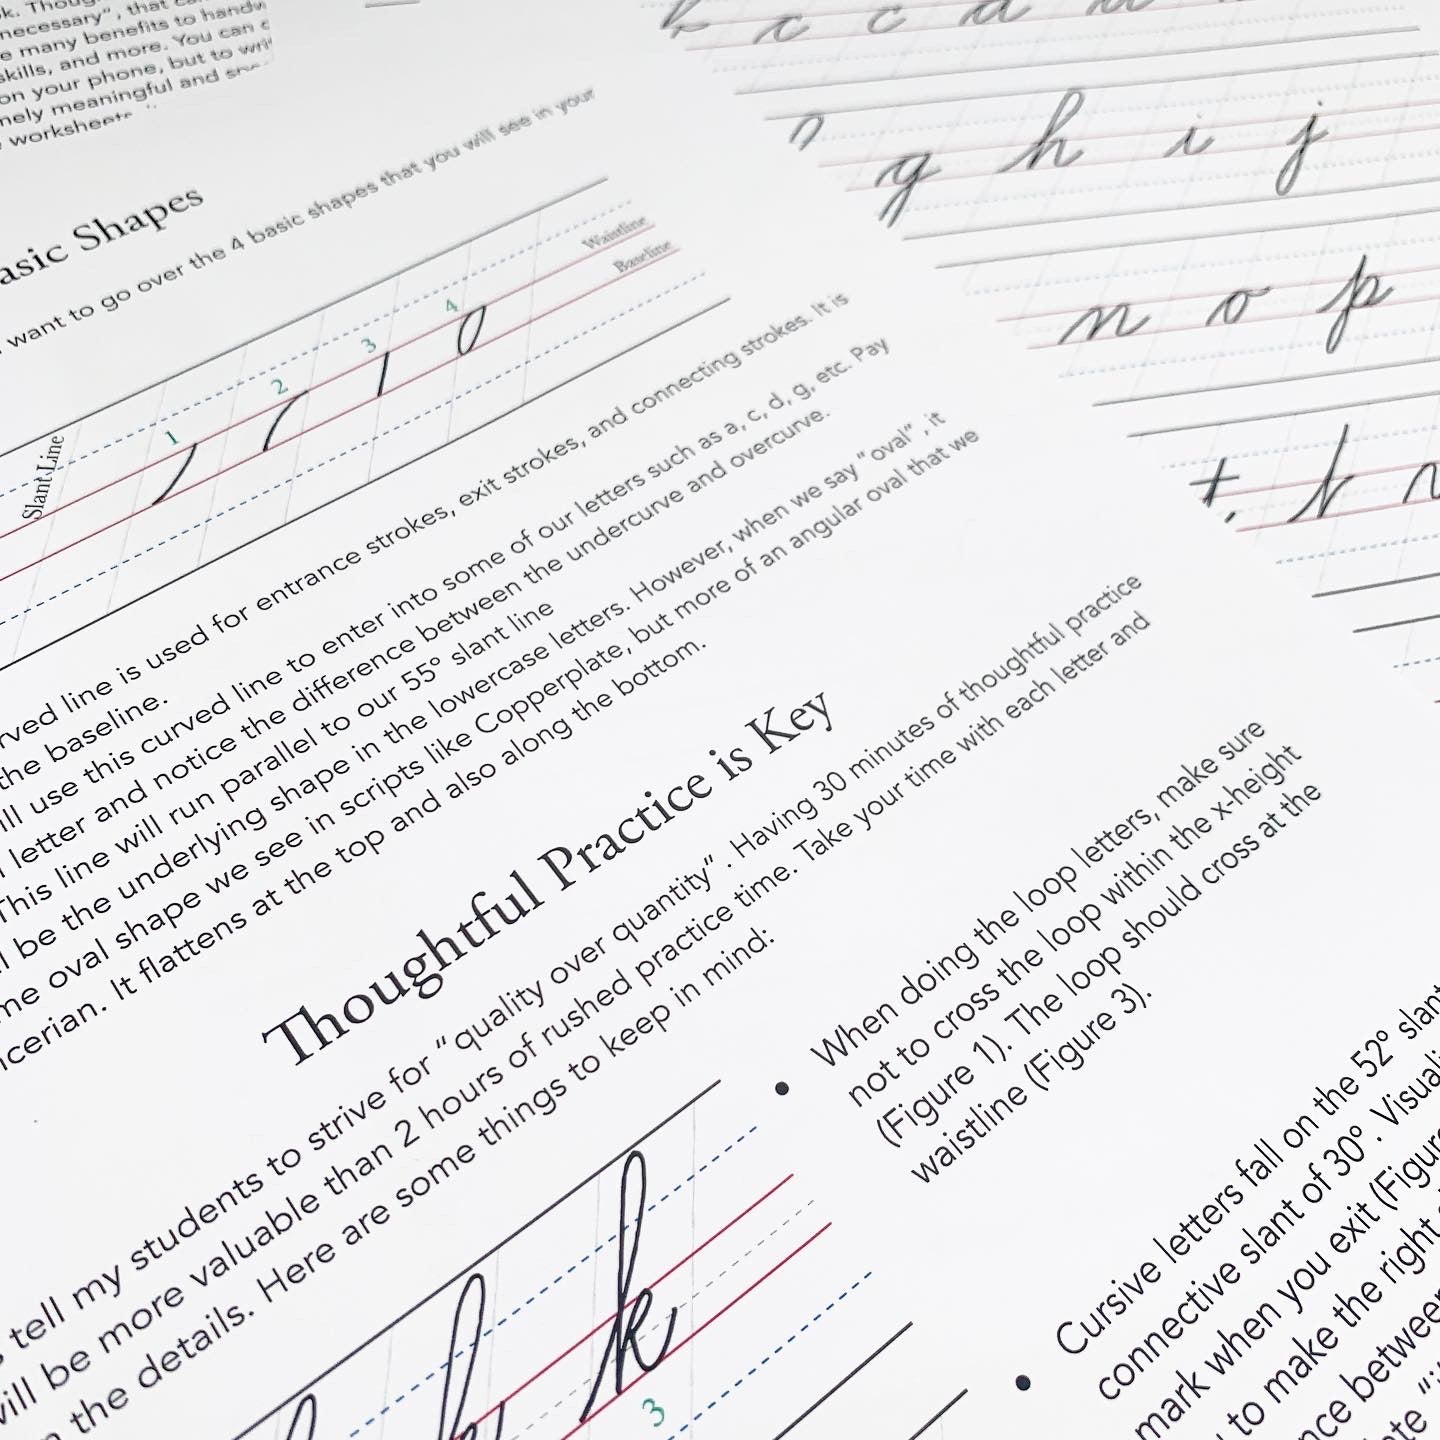 k. Though
necessary", that
e many benefits to handw
skills, and more. You can
on your phone, but to
nely meaningful and
worksheets
asic Shapes
want to go over the 4 basic shapes that you will see in your
Slant Line
1 2 3 4
Waistline
Baseline
rved line is used for entrance strokes, exit strokes, and connecting strokes. It is
the baseline.
ll use this curved line to enter into some of our letters such as a, c, d, g, etc. Pay
letter and notice the difference between the undercurve and overcurve.
This line will run parallel to our 55° slant line
l be the underlying shape in the lowercase letters. However, when we say "oval", it
me oval shape we see in scripts like Copperplate, but more of an angular oval that we
ncerian. It flattens at the top and also along the bottom.
Thoughtful Practice is Key
s tell my students to strive for "quality over quantity". Having 30 minutes of thoughtful practice
will be more valuable than 2 hours of rushed practice time. Take your time with each letter and
the details. Here are some things to keep in mind:
k k
3
• When doing the loop letters, make sure
not to cross the loop within the x-height
(Figure 1). The loop should cross at the
waistline (Figure 3).
• Cursive letters fall on the 52° slant
connective slant of 30°. Visuali
mark when you exit (Figure
to make the right
nce between
c c d
g h i j
n o p
t